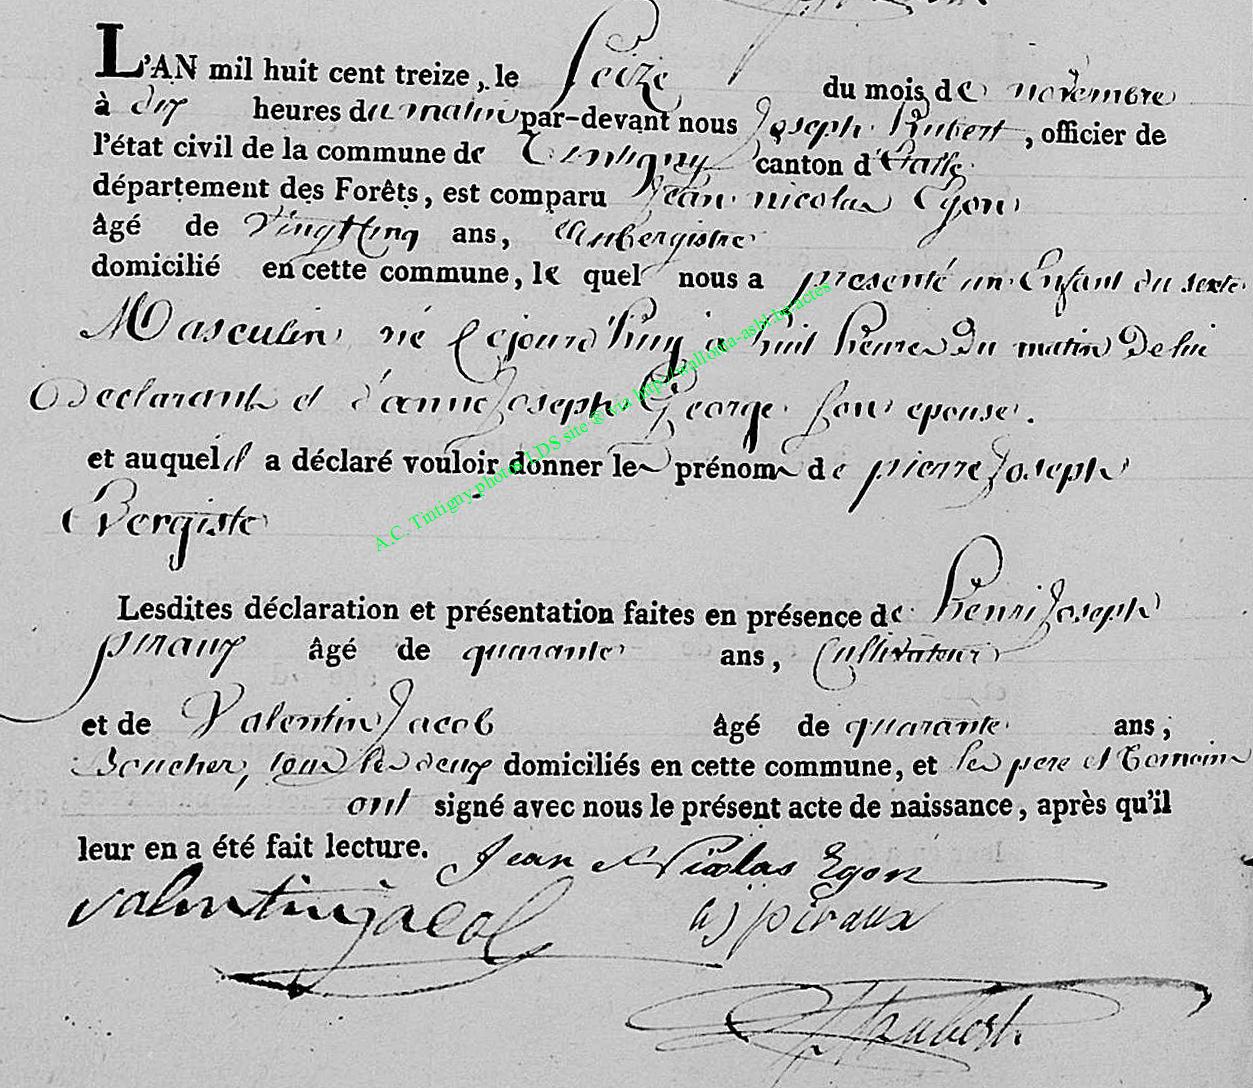 L'AN mil huit cent treize, le Seize du mois de novembre
à dix heures du matin par-devant nous Joseph Hubert, officier de
l'état civil de la commune de Tintigny canton d'Etalle
département des Forêts, est comparu Jean nicolas Egon
âgé de vingt cinq ans, Aubergiste
domicilié en cette commune, le quel nous a presenté un Enfant du sexe
Masculin né Cejourd'huy à huit heures du matin De lui
Declarant et d'anne Joseph George son epouse.
et auquel il a déclaré vouloir donner les prénoms de pierre Joseph
Evergiste
Lesdites déclaration et présentation faites en présence de henri Joseph
piraux âgé de quarante ans, Cultivateur
et de Valentin Jacob âgé de quarante ans,
Boucher, tous les deux domiciliés en cette commune, et les pere et Temoins
ont signé avec nous le présent acte de naissance, après qu'il
leur en a été fait lecture. Jean Nicolas Egon
valentin jacob piraux
A.C. Tintigny photos LDS site & via http://wallonia-asbl.be/actes